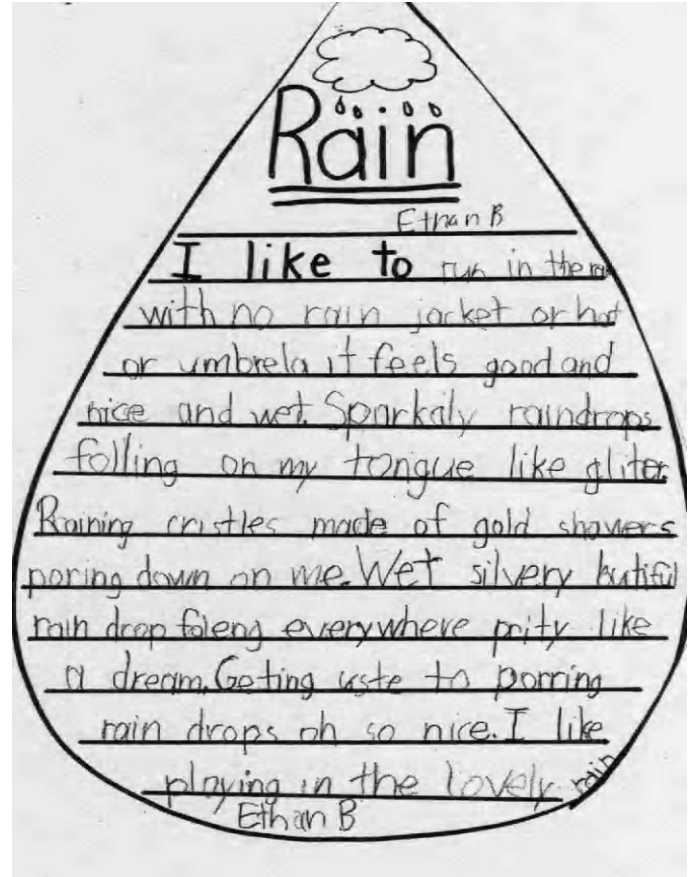 Rain
Ethan B
I like to run in the rain
with no rain jacket or hat
or umbrela it feels good and
nice and wet. Sparkaly raindrops
folling on my tongue like gliter.
Raining cristles made of gold showers
poring down on me. Wet silvery butiful
rain drop faleng everywhere prity like
a dream. Geting uste to porring
rain drops oh so nice. I like
playing in the lovely rain
Ethan B